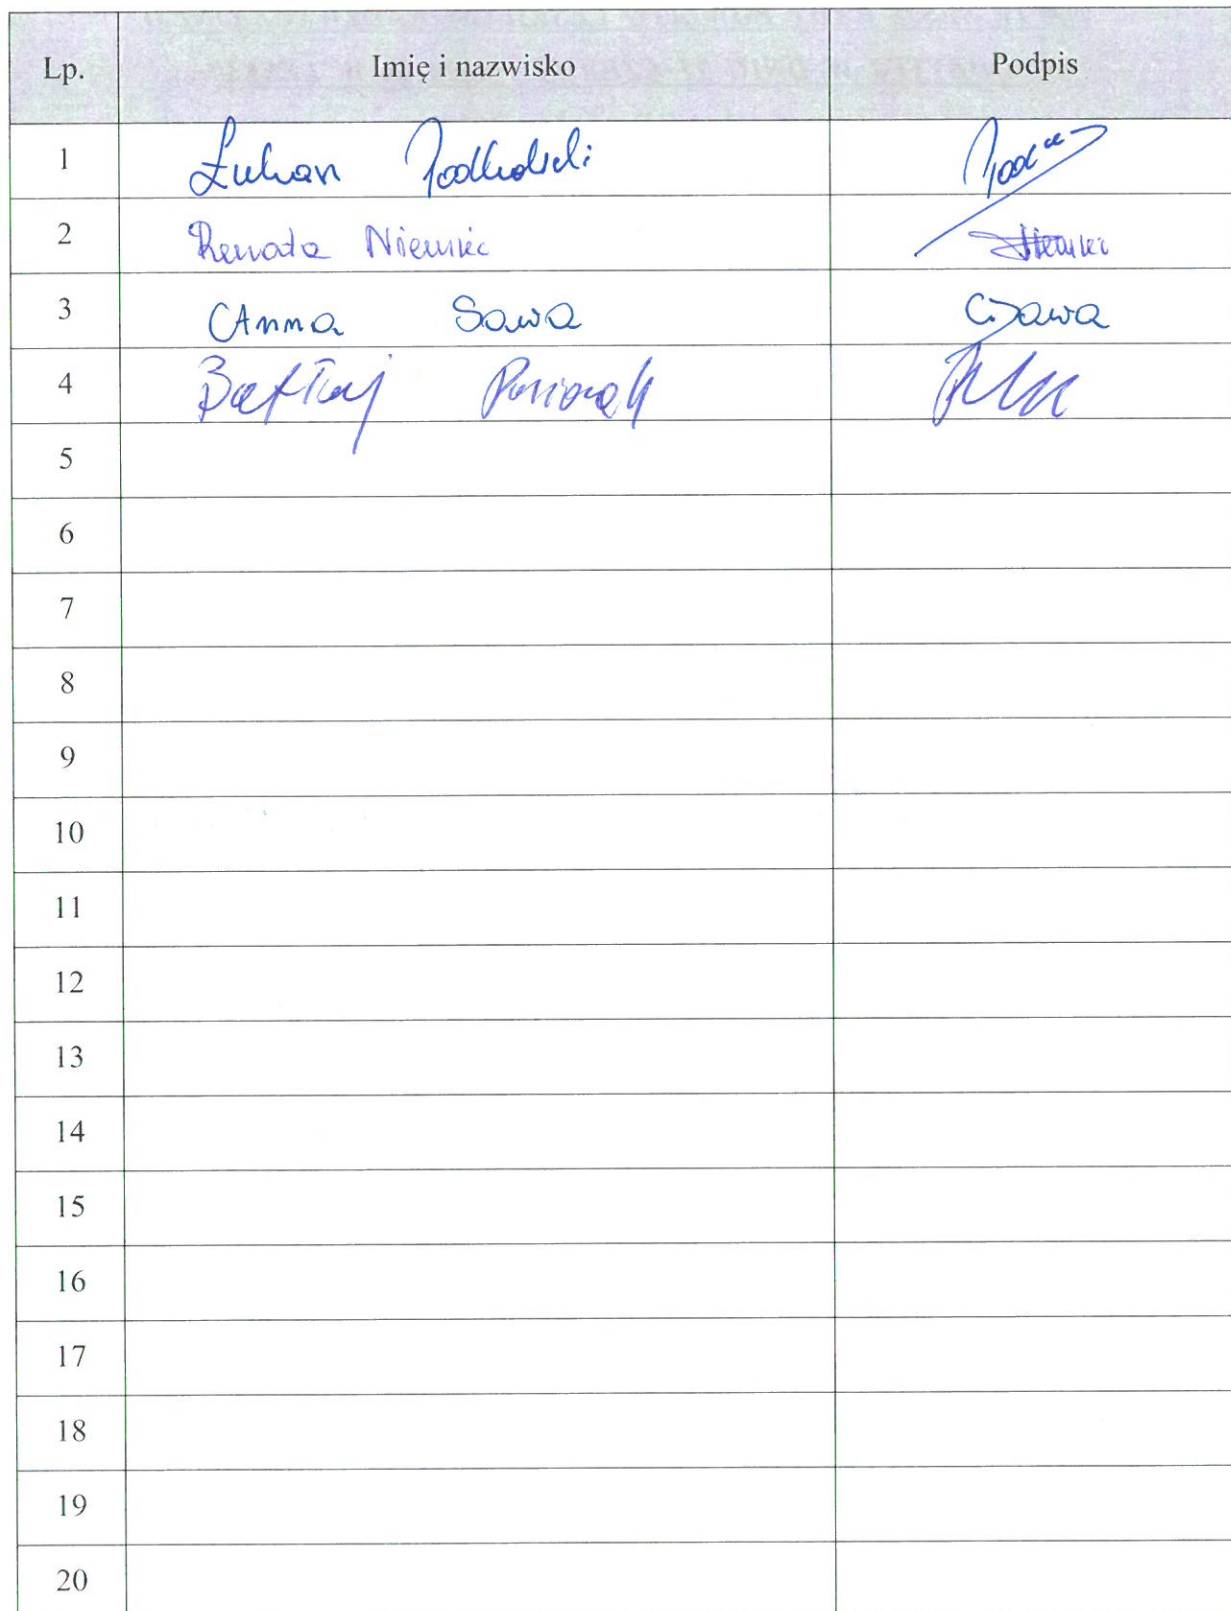 Lp. Imię i nazwisko Podpis
1 Łukasz Podkolski
2 Renata Niemiec Niemiec
3 Anna Sawa A.Sawa
4
5
6
7
8
9
10
11
12
13
14
15
16
17
18
19
20